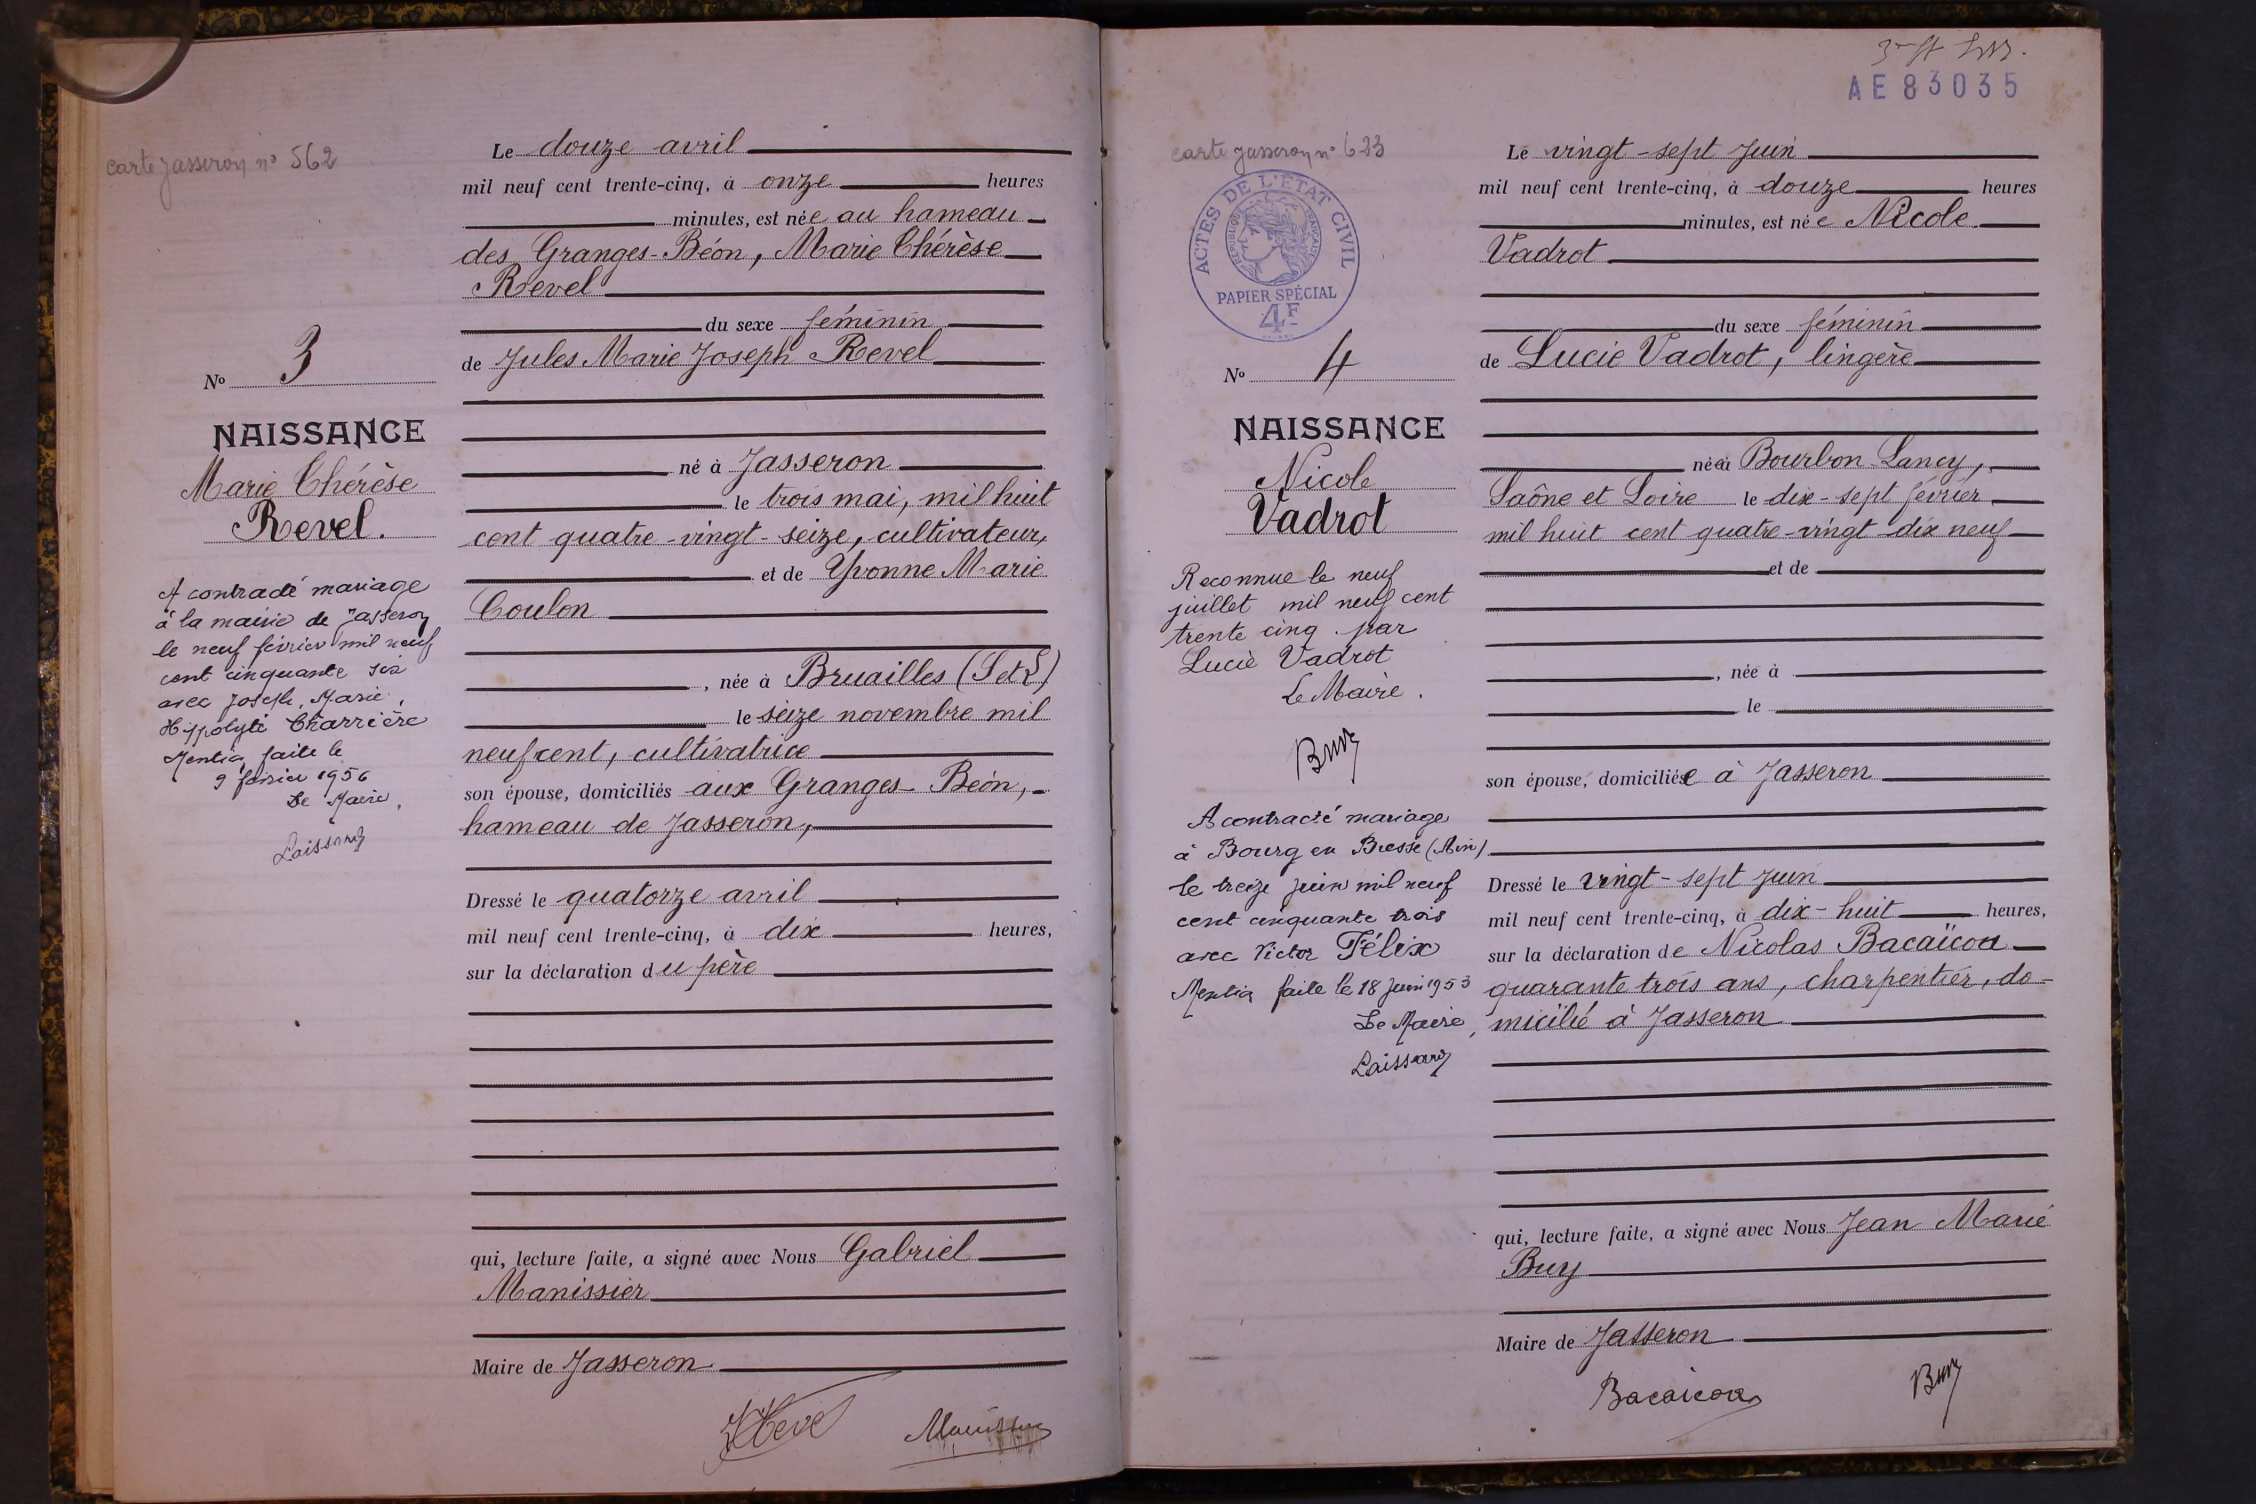 carte Jasseron n° 562
N° 3
NAISSANCE
Marie Thérèse
Revel.
A contracté mariage
à la mairie de Jasseron
le neuf février mil neuf
cent cinquante six
avec Joseph, Marie,
Hippolyte Charrière
Mention faite le
9 février 1956
Le Maire,
Le douze avril
mil neuf cent trente-cinq, à onze heures
minutes, est née au hameau
des Granges-Béon, Marie Thérèse
Revel
du sexe féminin
de Jules Marie Joseph Revel
né à Jasseron
le trois mai, mil huit
cent quatre-vingt-seize, cultivateur,
et de Yvonne Marie
Coulon
, née à Bruailles (S et L)
le seize novembre mil
neuf cent, cultivatrice
son épouse, domiciliés aux Granges-Béon,
hameau de Jasseron,
Dressé le quatorze avril
mil neuf cent trente-cinq, à dix heures,
sur la déclaration du père
qui, lecture faite, a signé avec Nous Gabriel
Manissier
Maire de Jasseron
Revel Manissier
AE83035
carte Jasseron n° 633
ACTES DE L'ETAT CIVIL
REPUBLIQUE FRANÇAISE
PAPIER SPÉCIAL
4F
N° 4
NAISSANCE
Nicole
Vadrot
Reconnue le neuf
juillet mil neuf cent
trente cinq par
Lucie Vadrot
Le Maire.
Buy
A contracté mariage
à Bourg en Bresse (Ain)
le treize juin mil neuf
cent cinquante trois
avec Victor Félix
Mention faite le 18 juin 1953
Le Maire,
Le vingt-sept Juin
mil neuf cent trente-cinq, à douze heures
minutes, est née Nicole
Vadrot
du sexe féminin
de Lucie Vadrot, lingère
née à Bourbon Lancy,
Saône et Loire le dix-sept février
mil huit cent quatre-vingt dix neuf
et de
, née à
le
son épouse, domiciliée à Jasseron
Dressé le vingt-sept Juin
mil neuf cent trente-cinq, à dix-huit heures,
sur la déclaration de Nicolas Bacaïcoa
quarante trois ans, charpentier, do-
micilié à Jasseron
qui, lecture faite, a signé avec Nous Jean Marie
Buy
Maire de Jasseron
Bacaicoa Buy